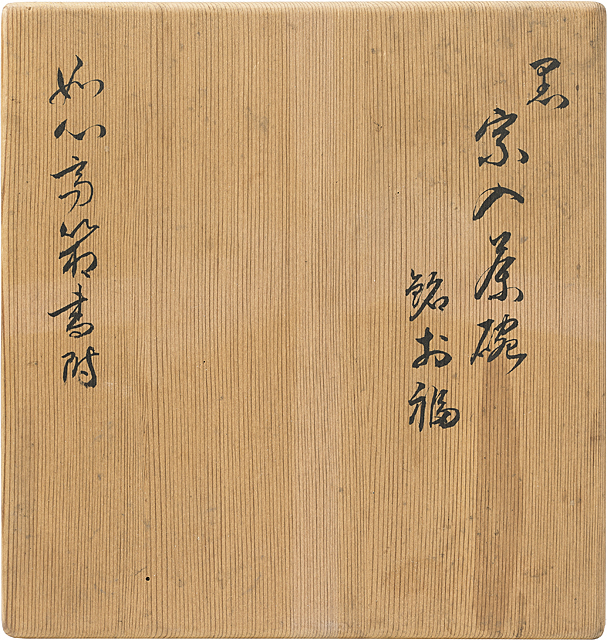 黒
宗入茶碗
銘お福
如心斎箱書附